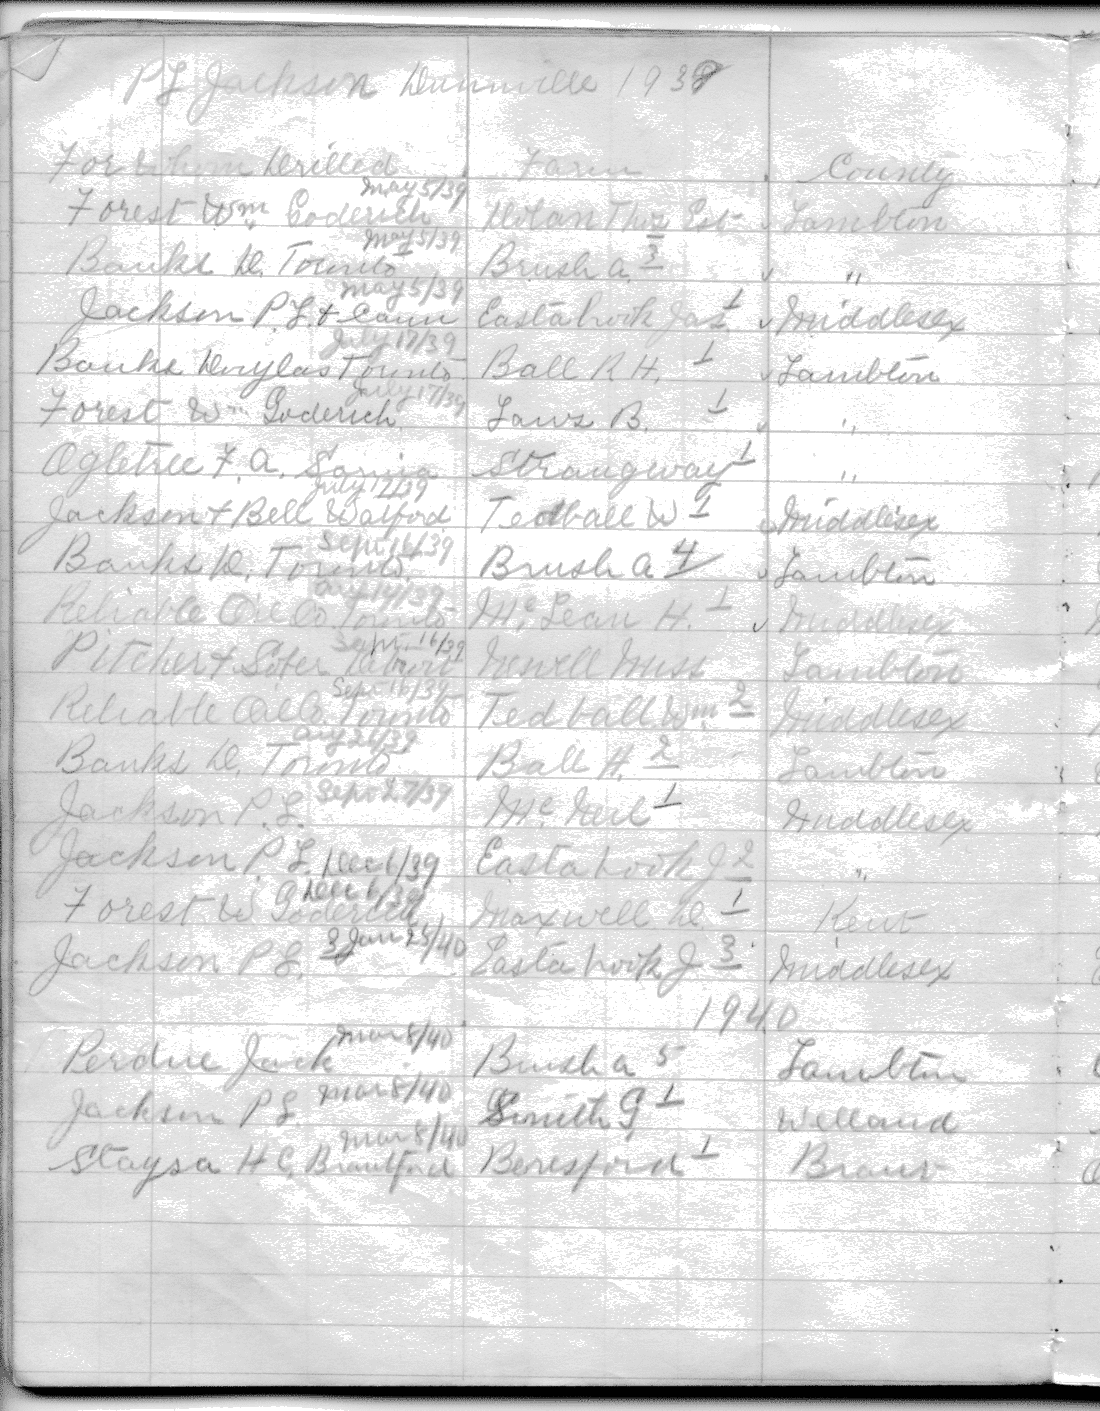 P L Jackson Dunnville 1939
For Whom Drilled Farm County
May 5/39
Forest Wm Goderich Dolan Thos Est Lambton
May 5/39
Banks D. Toronto Brush A. 3 "
May 5/39
Jackson P.L. + Eastabrook Jas 1 Middlesex
July 17/39
Banks Douglas Toronto Ball R H. 1 Lambton
July 17/39
Forest Wm Goderich Laws B. 1 "
Ogletree F. A. Sarnia Strangway 1 "
July 17/39
Jackson + Bell Watford Tedball W 1 Middlesex
Sept 16/39
Banks D. Toronto Brush A 4 Lambton
Aug 19/39
Reliable Oil Co. Toronto Mc Lean H. 1 Middlesex
Sept. 16/39
Pitcher + Newell Miss Lambton
Sept 16/39
Reliable Oil Co. Toronto Tedball Wm 2 Middlesex
Aug 26/39
Banks D. Toronto Ball H. 2 Lambton
Sept 27/39
Jackson P.L. Mc Neil 1 Middlesex
Jackson P.L. Dec 6/39 Eastabrook J 2 "
Dec 6/39
Forest W Goderich Maxwell D. 1 Kent
Jan 25/40
Jackson P L. Eastabrook J 3 Middlesex
1940
Mar 8/40
Perdue Jack Brush A 5 Lambton
Mar 8/40
Jackson P L. Smith G 1 Welland
Mar 8/40
Staysa H C, Brantford Beresford 1 Brant